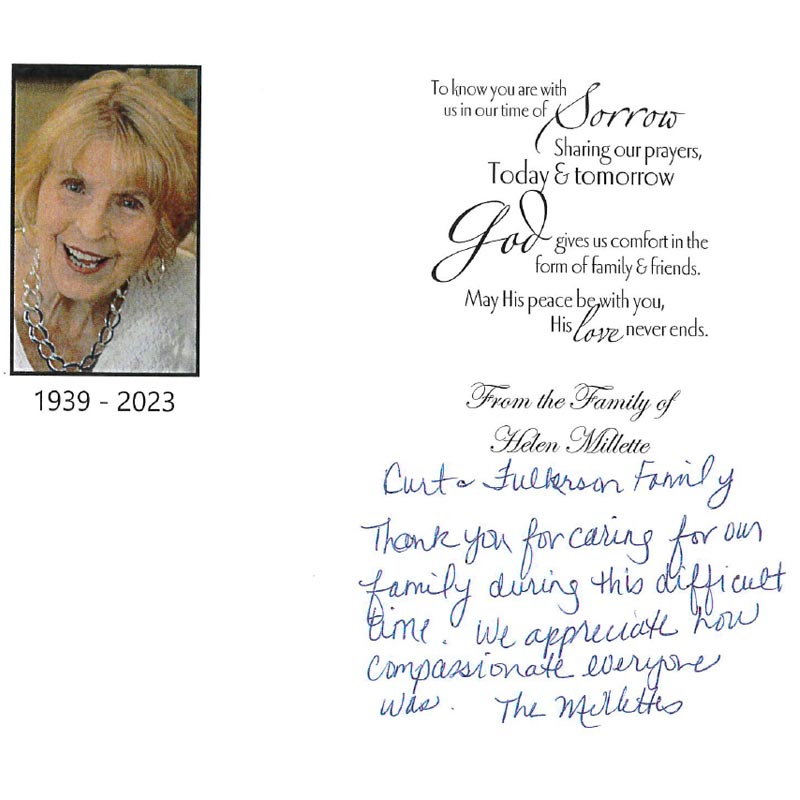 1939 - 2023
To know you are with
us in our time of Sorrow
Sharing our prayers,
Today & tomorrow
God gives us comfort in the
form of family & friends.
May His peace be with you,
His love never ends.
From the Family of
Helen Millette
Curt & Fulkerson Family
Thank you for caring for our
family during this difficult
time. We appreciate how
compassionate everyone
was. The Millettes